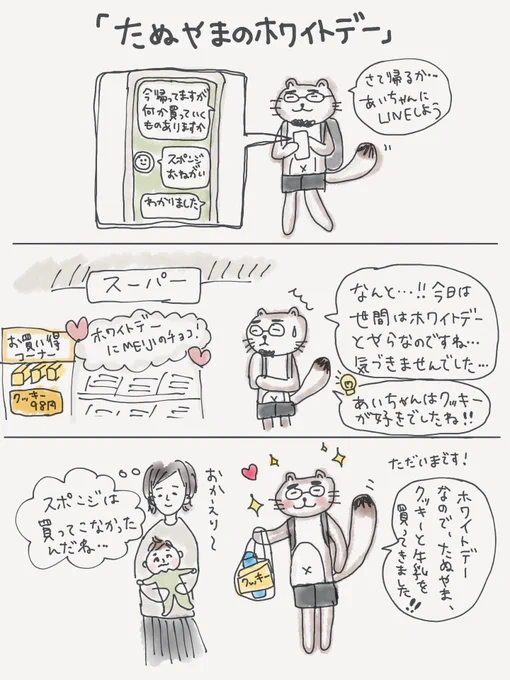 「たぬやまのホワイトデー」
さて帰るか…
あいちゃんに
LINEしよう
今帰ってますが
何か買っていく
ものありますか
スポンジ
おねがい
わかりました
スーパー
お買い得
コーナー
クッキー
98円
ホワイトデー
にMEIJIのチョコ!
なんと…!!今日は
世間はホワイトデー
とやらなのですね…
気づきませんでした…
あいちゃんはクッキー
が好きでしたね!!
スポンジは
買ってこなかった
んだね…
おかーえり〜
クッキー
ただいまです!
ホワイトデー
なので、たぬやま、
クッキーと牛乳を
買ってきました!!